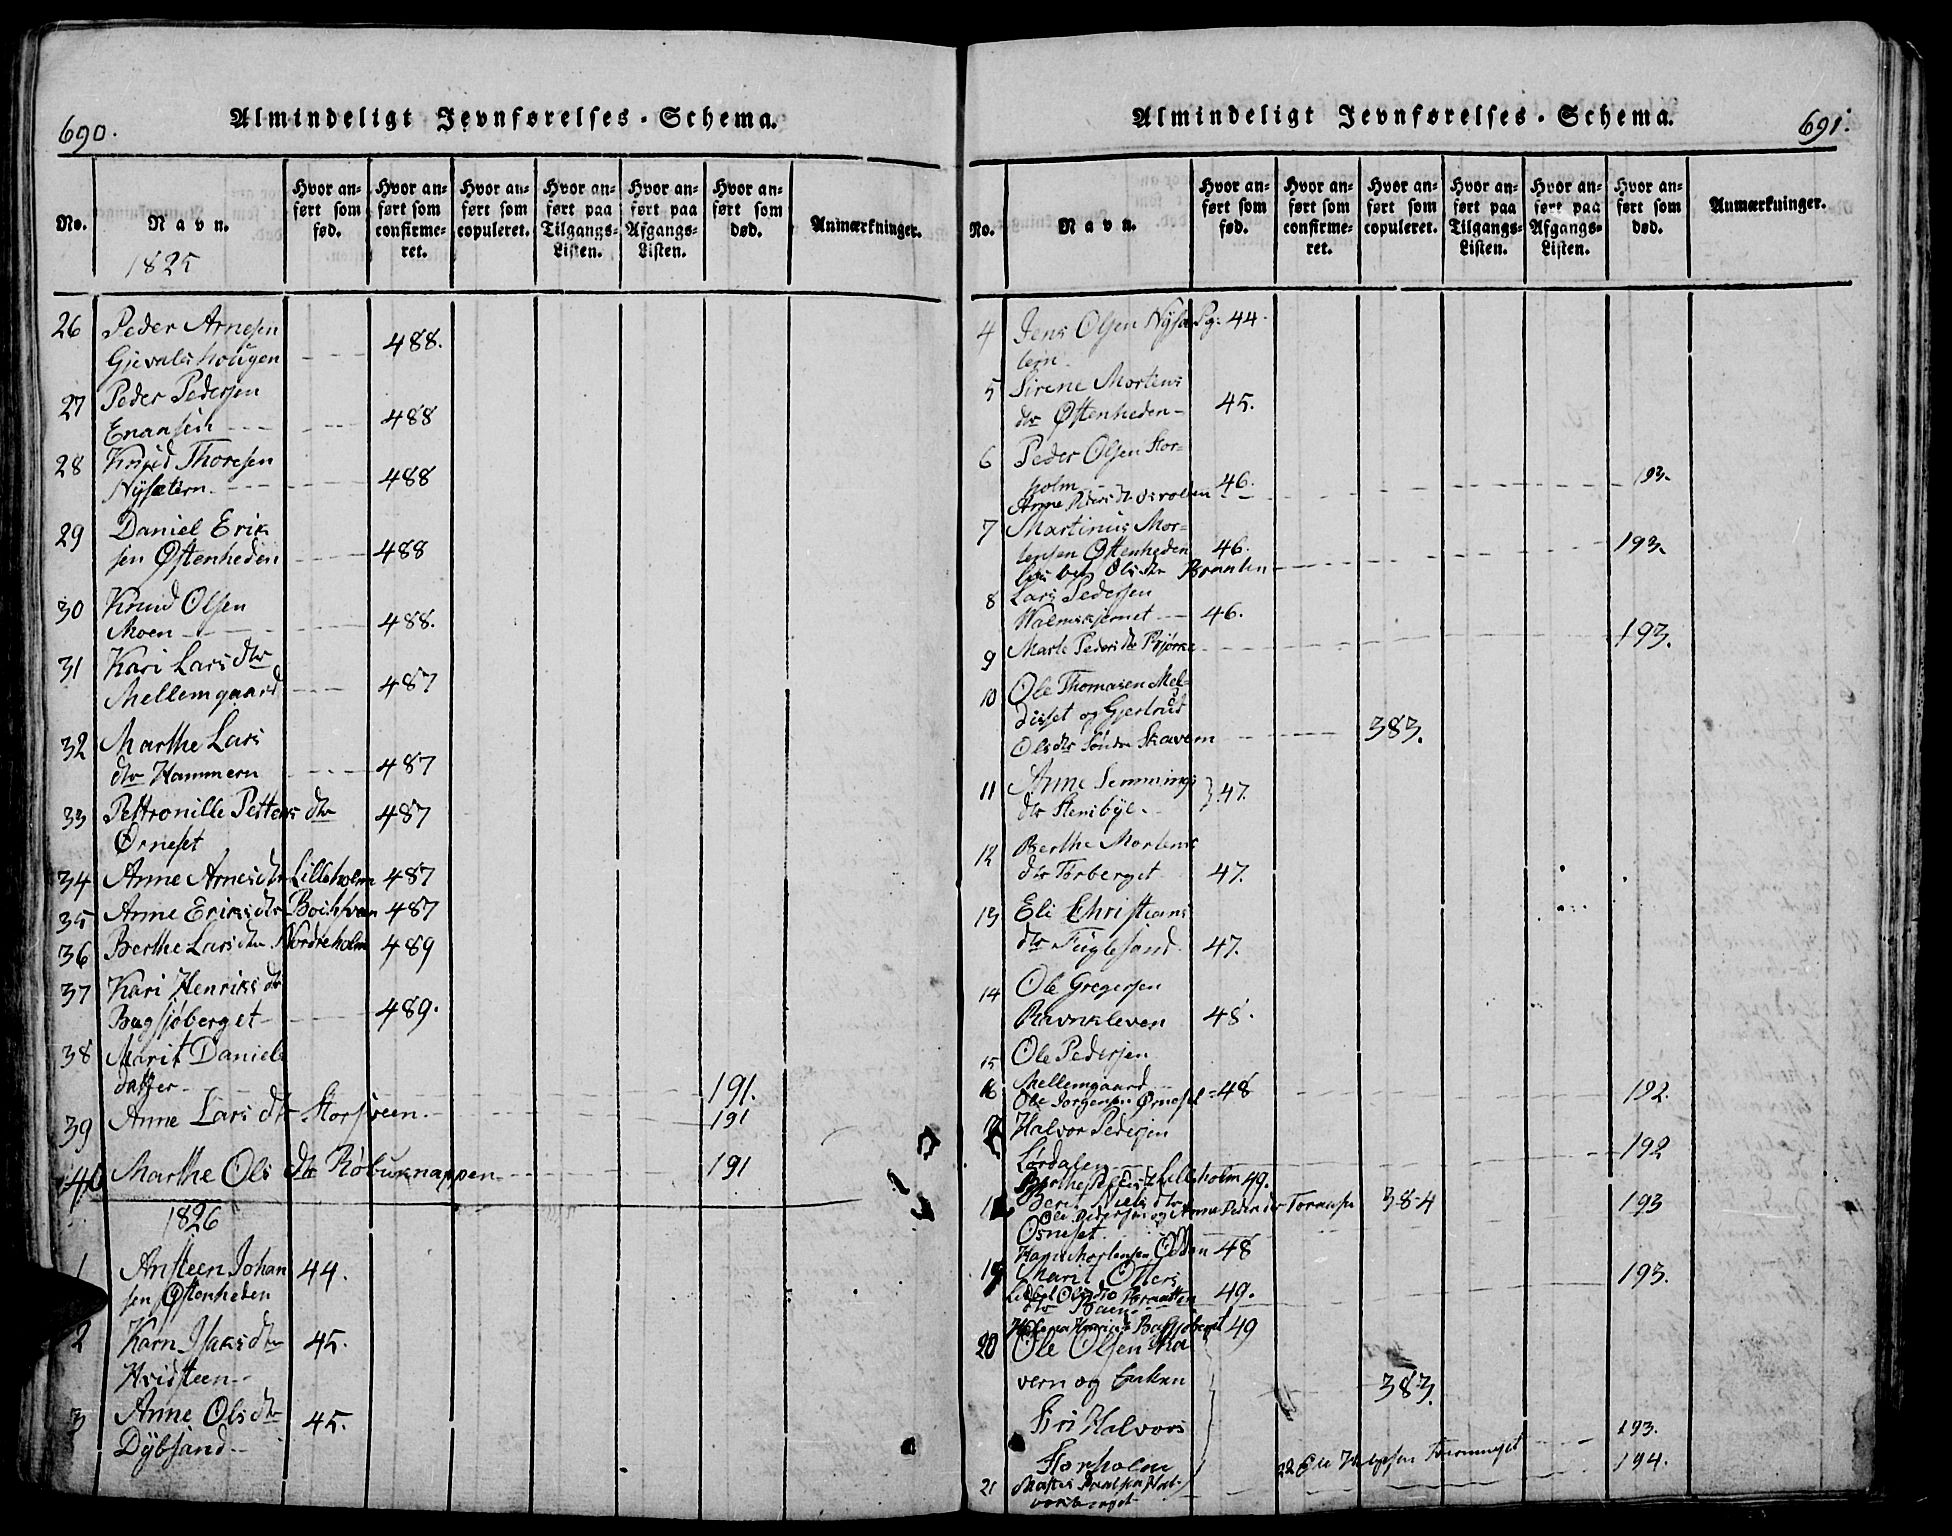 690.
Almindeligt Jevnførelses-Schema.
No.
Navn.
1825
Hvor anført som fød.
Hvor anført som confirmeret.
Hvor anført som copuleret.
Hvor anført paa Tilgangs-Listen.
Hvor anført paa Afgangs-Listen.
Hvor anført som død.
Anmærkninger.
26 Peder Arnesen
Gjevalshougen 488.
27 Peder Pedersen
488
28 Knud Thoresen
Nysætern 488
29 Daniel Erik
sen Østenheden 488
30 Knud Olsen
Moen 488.
31 Kari Lars dtr
Mellemgaard 487
32 Marthe Lars
dtr Hammern 487
33 Pettronille Petters dtr 487
Ørneset
34 Anne Arnes dtr Lilleholm 487
35 Anne Eriks dtr 487
36 Berthe Lars dtr Nordreholm 489
37 Kari Henriks dtr
Bagsjøberget 489.
38 Marit Daniels
datter 191.
39 Anne Lars dtr 191
40 Marthe Ols dtr 191
1826
1 Ansteen Johan 44.
sen Østenheden
2 Karn Isaks dtr 45.
Hvidsteen
3 Anne Ols dtr 45.
Dybsand
Almindeligt Jevnførelses-Schema.
691.
No.
Navn.
Hvor anført som fød.
Hvor anført som confirmeret.
Hvor anført som copuleret.
Hvor anført paa Tilgangs-Listen.
Hvor anført paa Afgangs-Listen.
Hvor anført som død.
Anmærkninger.
4 Jens Olsen Nysæ Pg: 44.
tern
5 Sirene Mortens
dtr Østenheden 45.
6 Peder Olsen Stor-
holm 46. 193.
Anne Peders dtr
7 Martinus Mor-
tensen Østenheden 46. 193.
Ols dtr Braaten
8 Lars Pedersen
46.
9 Marte Peders dtr Bjørke 193.
10 Ole Thomasen Mel-
disset og Gjertrud
Ols dtr Søndre Skavern 383.
11 Anne Semmings
dtr Stensbye 47.
12 Berthe Mortens
dtr Torberget 47.
13 Eli Christians
dtr Fuglesand 47.
14 Ole Gregersen
Ravnkleven 48.
15 Ole Pedersen
Mellemgaard
16 Ole Jorgensen Ørneset 48 192.
17 Halvor Pedersen
Lørdalen 192
Lilleholm 49.
Berit Niels dtr
Ole Pedersen og Anne Peders dtr 384 193
Osneset
Hans Mortensen Odden 48
19 Marit Ollers 193.
Ols dtr Braatten 49.
dtr
Bagsjøberget 49
20 Ole Olsen Ska
vern og Enken
383.
Siri Halvors
193.
Storholm
22 194.
21